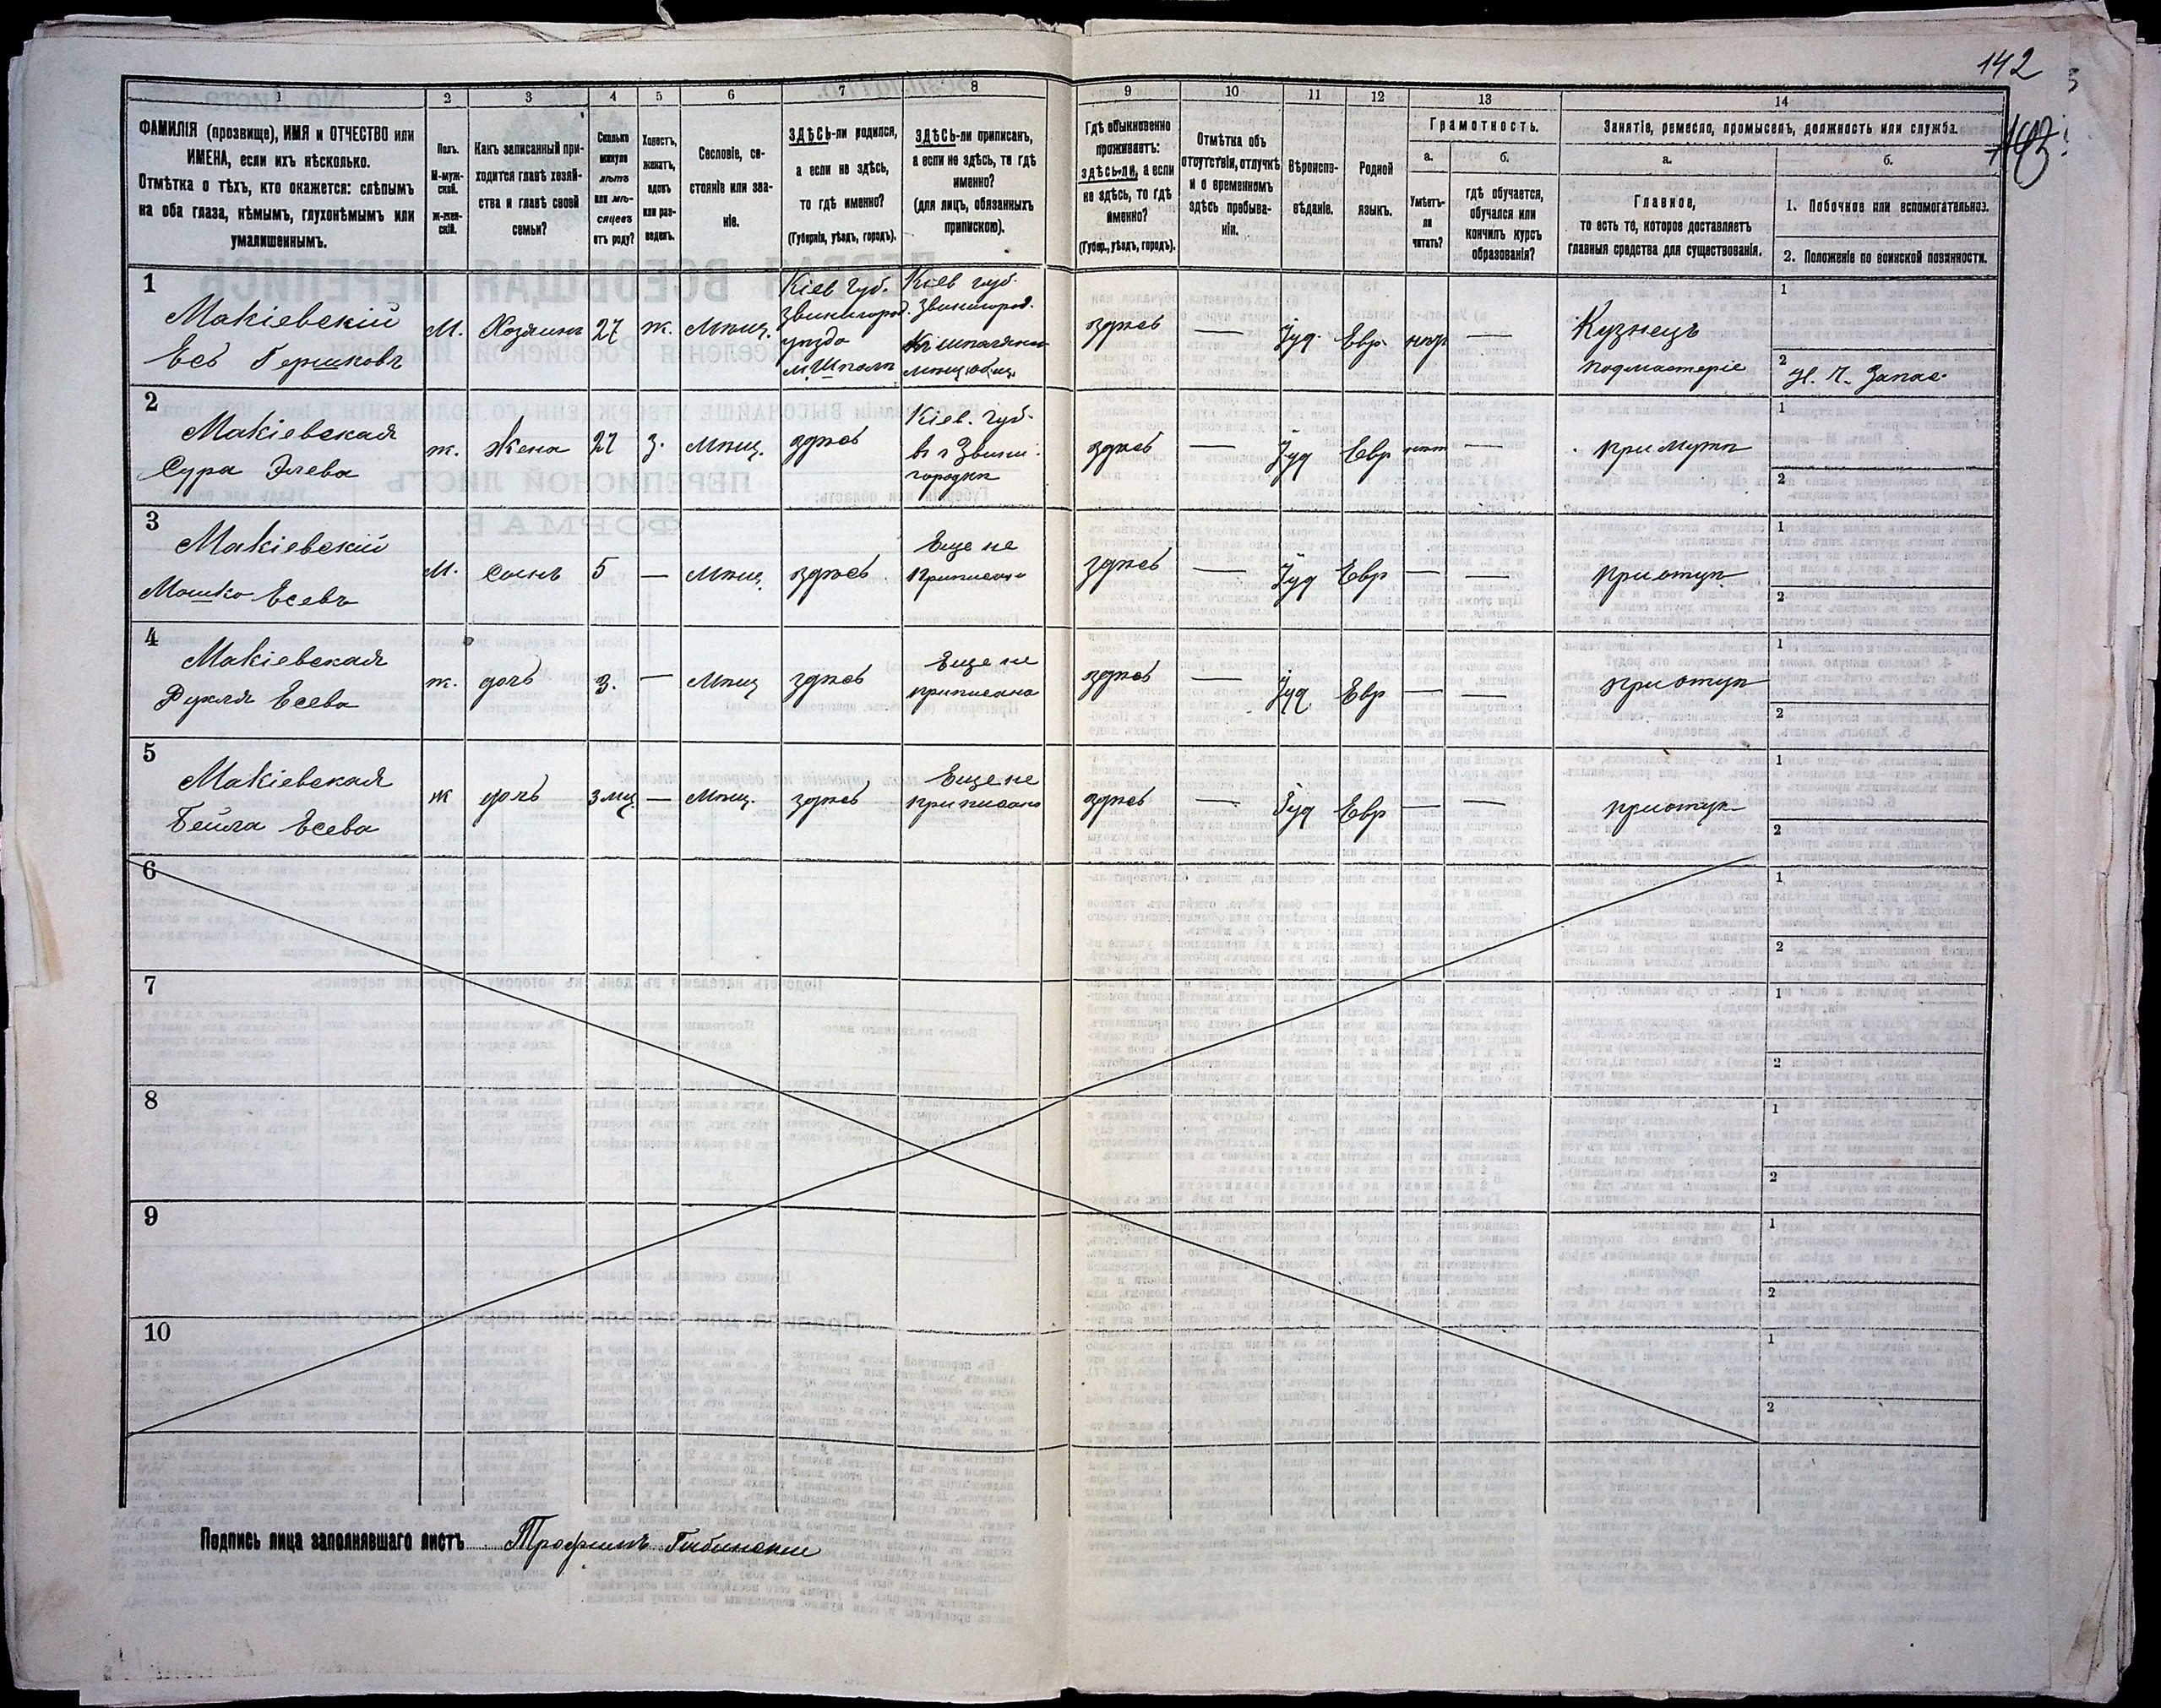 142
1 2 3 4 5 6 7 8 9 10 11 12 13 14
ФАМИЛІЯ (прозвище), ИМЯ и ОТЧЕСТВО или
ИМЕНА, если ихъ нѣсколько.
Отмѣтка о тѣхъ, кто окажется: слѣпымъ
на оба глаза, нѣмымъ, глухонѣмымъ или
умалишеннымъ.
Полъ.
М-муж-
ской.
ж-жен-
скій.
Какъ записанный при-
ходится главѣ хозяй-
ства и главѣ своей
семьи?
Сколько
минуло
лѣтъ
или мѣ-
сяцевъ
отъ роду?
Холостъ,
женатъ,
вдовъ
или раз-
веденъ.
Сословіе, со-
стояніе или зва-
ніе.
ЗДѢСЬ-ли родился,
а если не здѣсь,
то гдѣ именно?
(Губернія, уѣздъ, городъ).
ЗДѢСЬ-ли приписанъ,
а если не здѣсь, то гдѣ
именно?
(для лицъ, обязанныхъ
припискою).
Гдѣ обыкновенно
проживаетъ:
здѣсь-ли, а если
не здѣсь, то гдѣ
именно?
(Губер., уѣздъ, городъ).
Отмѣтка объ
отсутствіи, отлучкѣ
и о временномъ
здѣсь пребыва-
ніи.
Вѣроиспо-
вѣданіе.
Родной
языкъ.
Грамотность.
а.
Умѣетъ-
ли
читать?
б.
гдѣ обучается,
обучался или
кончилъ курсъ
образованія?
Занятіе, ремесло, промыселъ, должность или служба.
а.
Главное,
то есть то, которое доставляетъ
главныя средства для существованія.
б.
1. Побочное или вспомогательное.
2. Положеніе по воинской повинности.
1
Макіевскій
Есь Гершковъ
М.
Хозяинъ
27
ж.
Мѣщ.
Кіев губ.
Звенигород.
уѣзда
м. Шполѣ
Кіев губ.
Звенигород.
здѣсь
—
Іуд.
Евр.
нѣтъ
—
Кузнецъ
подмастеріе
1
2
2
Макіевская
Сура Элева
ж.
Жена
27
З.
Мѣщ.
здѣсь
Кіев. губ.
въ г Звени-
городкѣ
здѣсь
—
Іуд
Евр
нѣтъ
—
при мужѣ
1
2
3
Макіевскій
Мошко Есевъ
М.
Сынъ
5
—
Мѣщ
здѣсь
Еще не
приписанъ
здѣсь
—
Іуд
Евр
—
—
при отцѣ
1
2
4
Макіевская
Рухля Есева
ж.
дочь
3.
—
Мѣщ
здѣсь
Еще не
приписана
здѣсь
—
Іуд
Евр
—
—
при отцѣ
1
2
5
Макіевская
Бейла Есева
ж
дочь
3 мц.
—
Мѣщ.
здѣсь
Еще не
приписана
здѣсь
—
Іуд
Евр
—
—
при отцѣ
1
2
6
1
2
7
1
2
8
1
2
9
1
2
10
1
2
Подпись лица заполнявшаго листъ Трофимъ